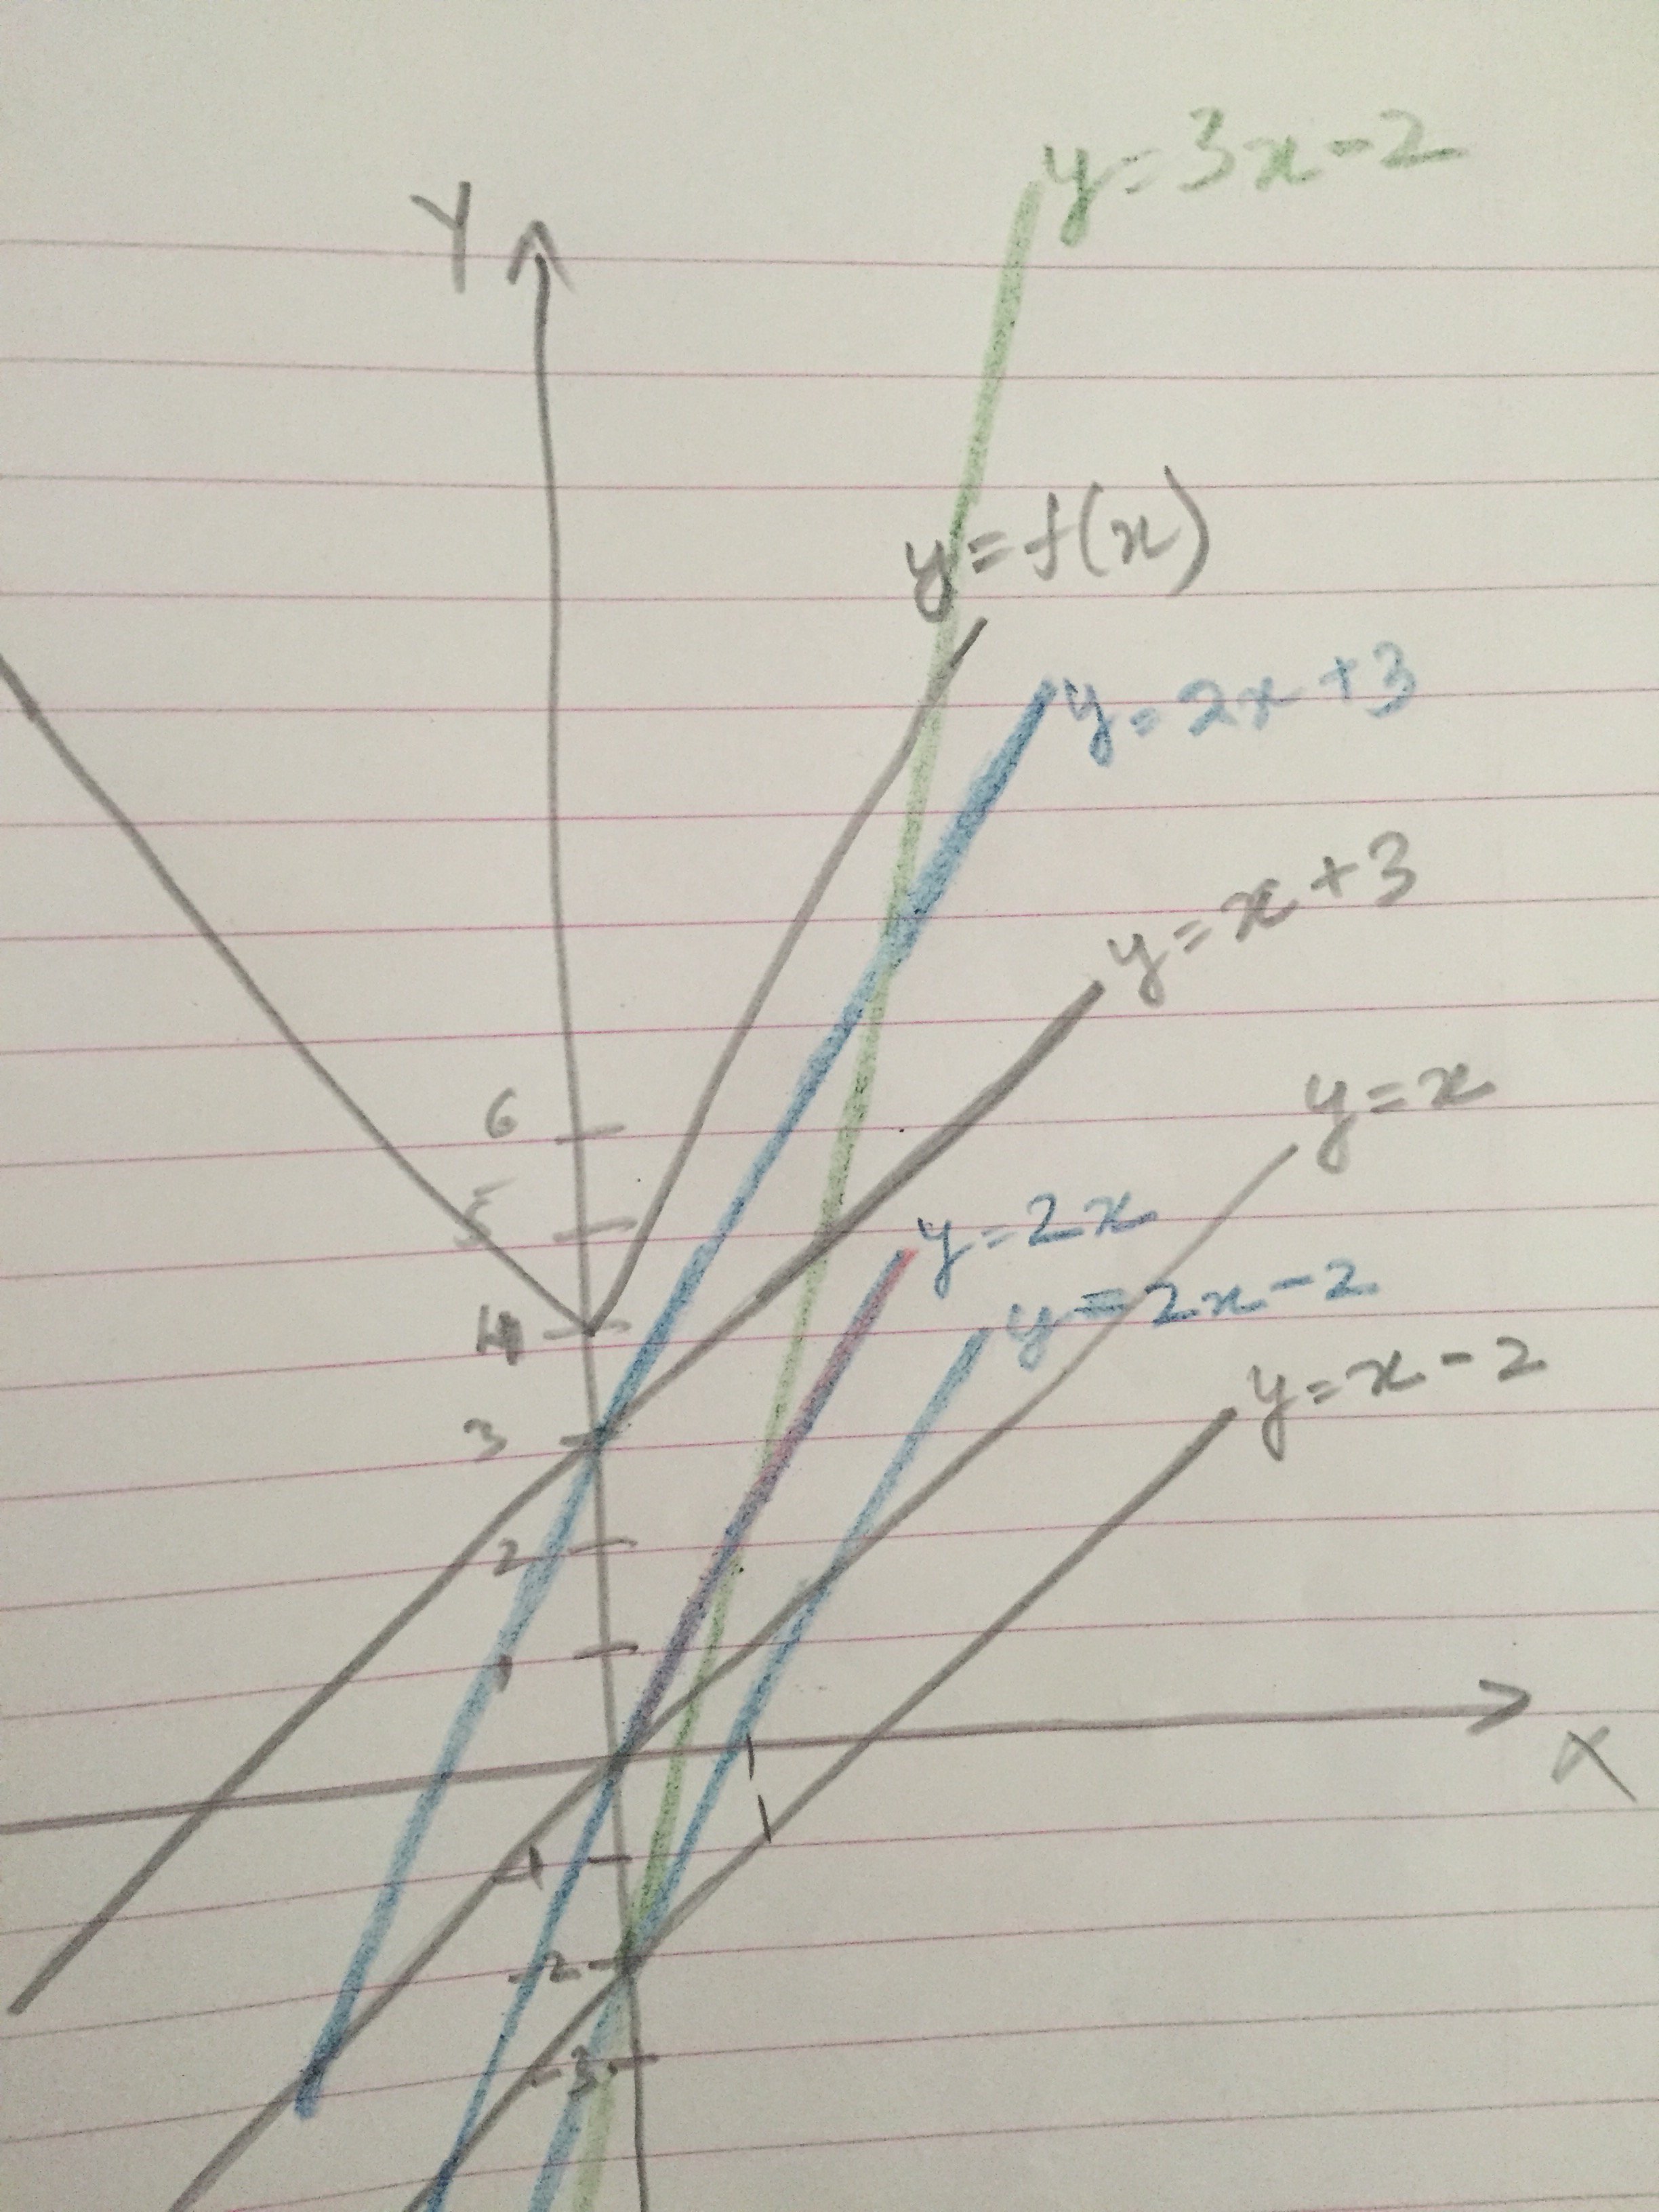 y=3x-2
Y
y=f(x)
y=2x+3
y=x+3
y=x
6
5
y=2x
y=2x-2
4
y=x-2
3
2
1
X
1
-1
-2
-3